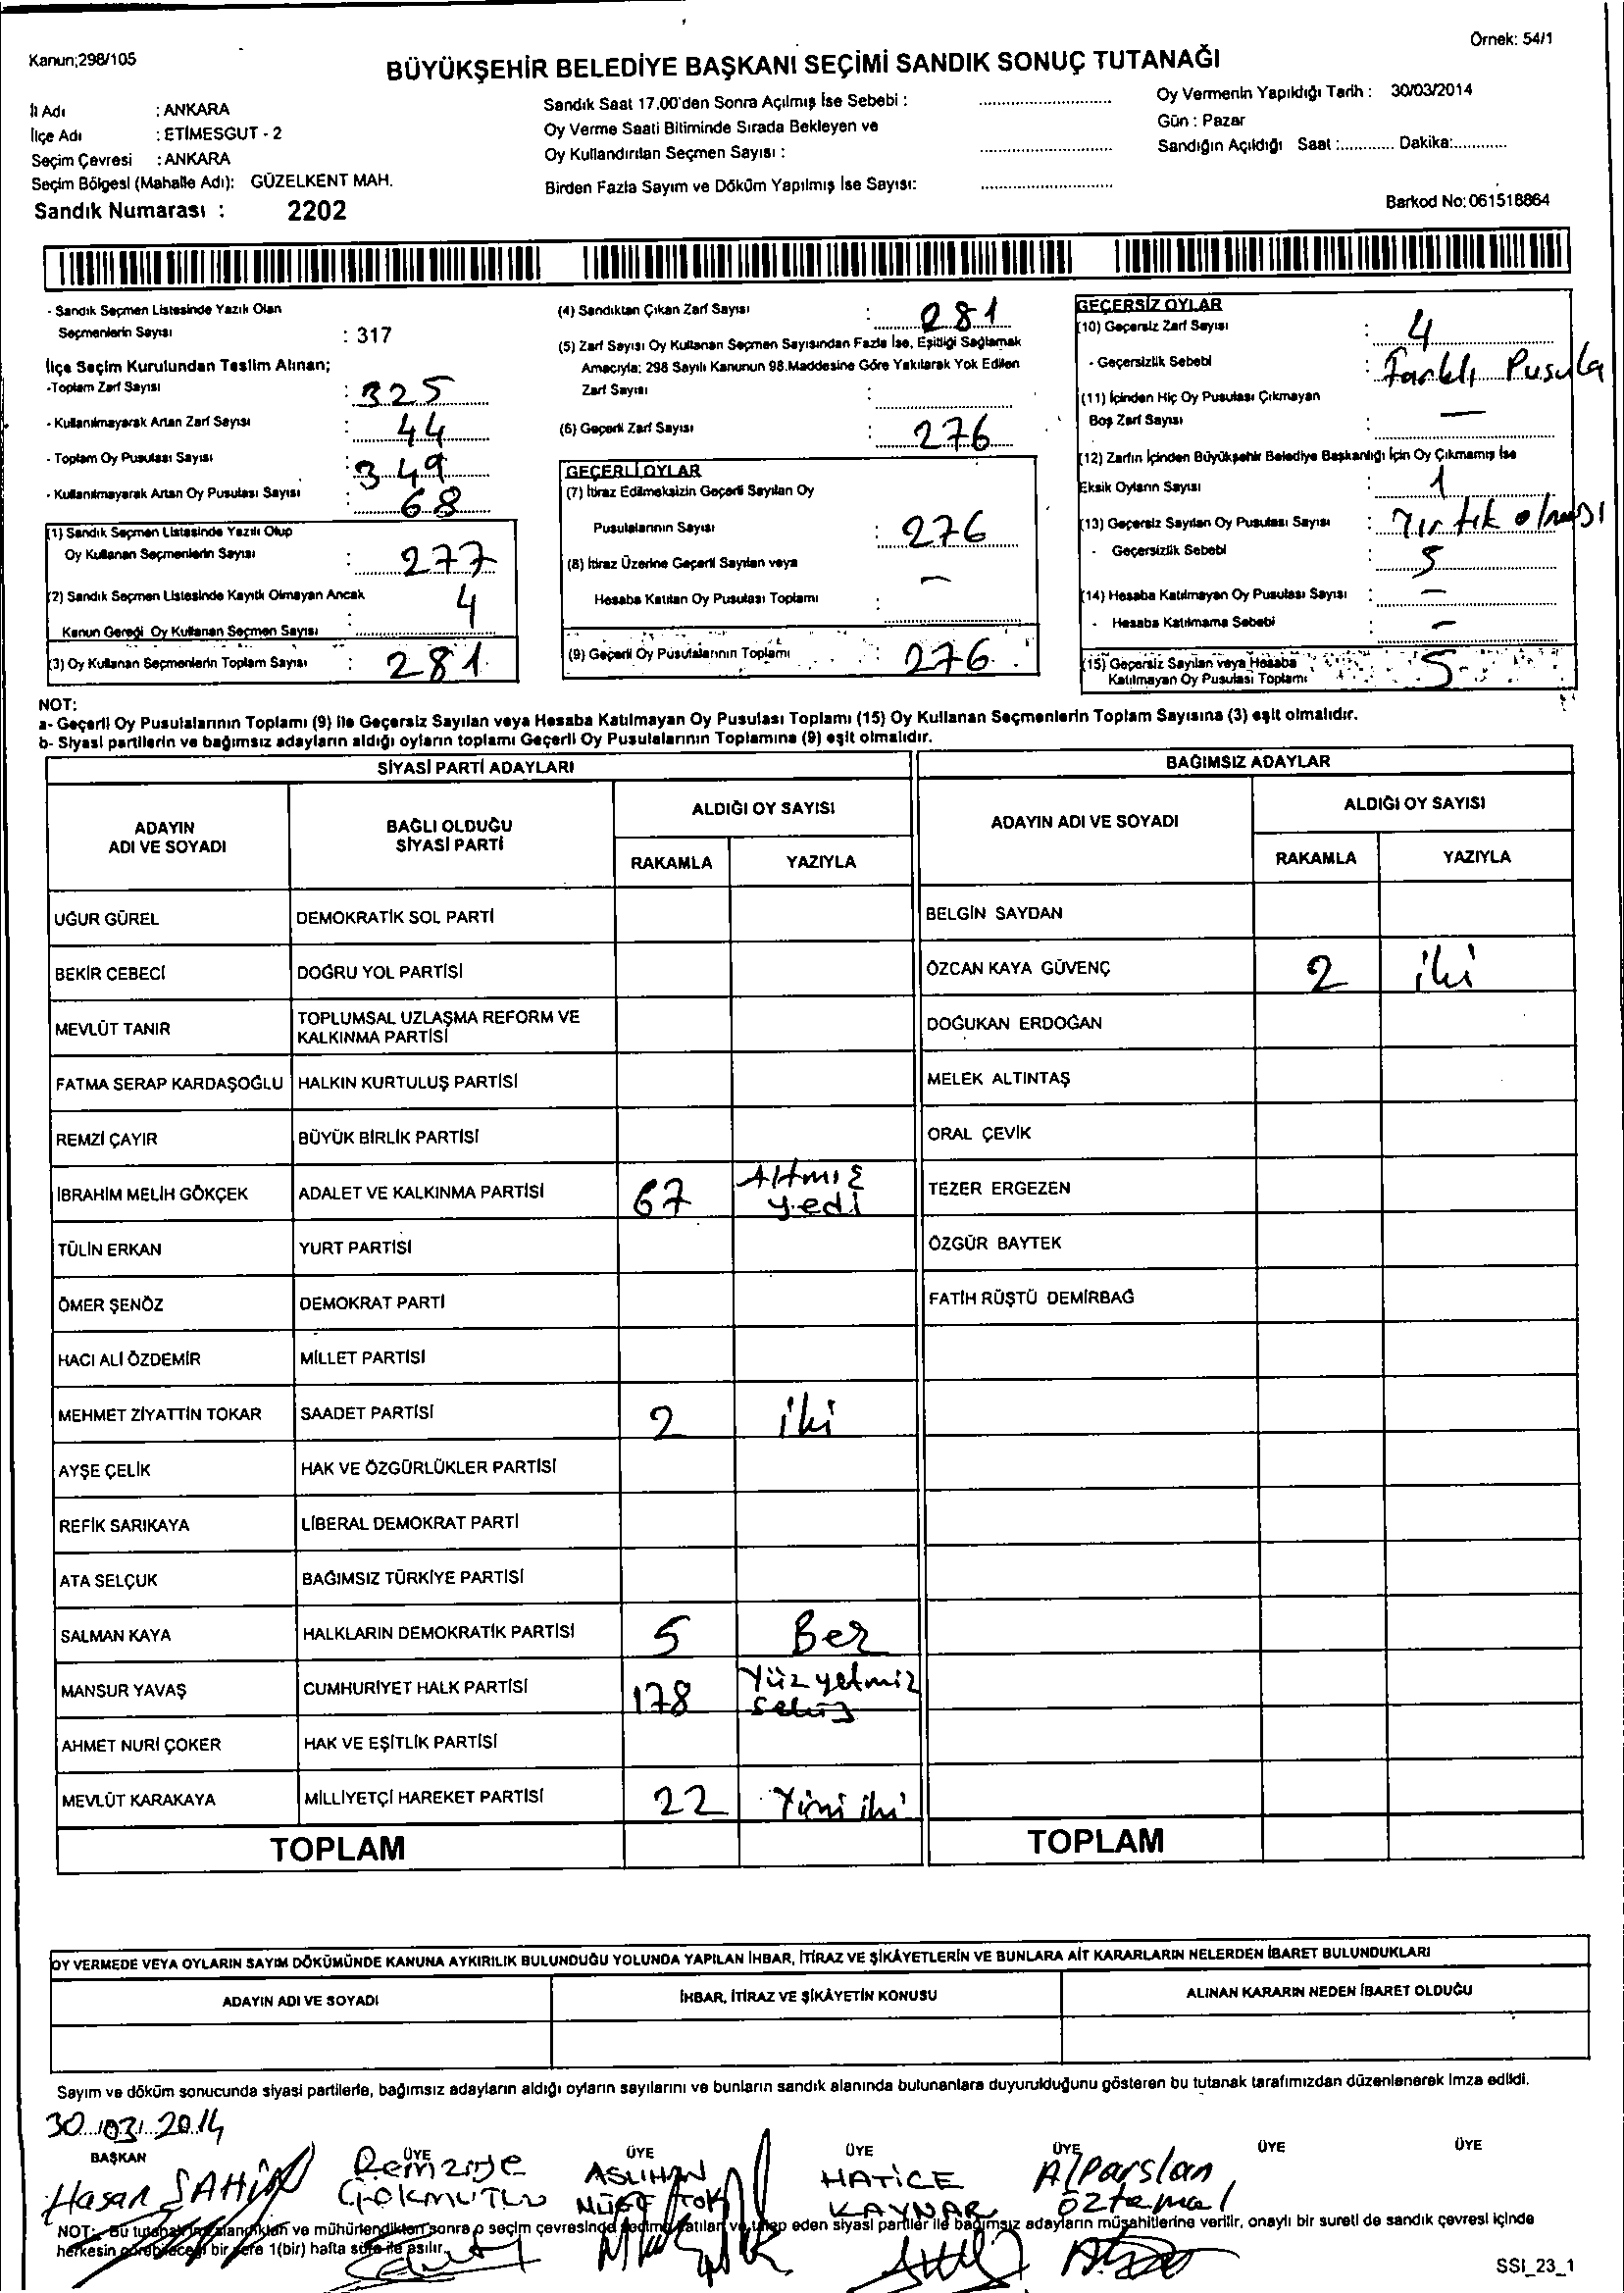 Örnek: 54/1
Kanun;298/105
BÜYÜKŞEHİR BELEDİYE BAŞKANI SEÇİMİ SANDIK SONUÇ TUTANAĞI
İl Adı : ANKARA
İlçe Adı : ETİMESGUT - 2
Seçim Çevresi : ANKARA
Seçim Bölgesi (Mahalle Adı): GÜZELKENT MAH.
Sandık Numarası : 2202
Sandık Saat 17.00'den Sonra Açılmış İse Sebebi :
Oy Verme Saati Bitiminde Sırada Bekleyen ve
Oy Kullandırılan Seçmen Sayısı :
Birden Fazla Sayım ve Döküm Yapılmış İse Sayısı:
Oy Vermenin Yapıldığı Tarih : 30/03/2014
Gün : Pazar
Sandığın Açıldığı Saat :............ Dakika:............
Barkod No: 061518864
- Sandık Seçmen Listesinde Yazılı Olan
Seçmenlerin Sayısı : 317
İlçe Seçim Kurulundan Teslim Alınan;
-Toplam Zarf Sayısı : 325
- Kullanılmayarak Artan Zarf Sayısı : 44
- Toplam Oy Pusulası Sayısı : 349
- Kullanılmayarak Artan Oy Pusulası Sayısı : 68
(1) Sandık Seçmen Listesinde Yazılı Olup
Oy Kullanan Seçmenlerin Sayısı : 277
(2) Sandık Seçmen Listesinde Kayıtlı Olmayan Ancak
Kanun Gereği Oy Kullanan Seçmen Sayısı : 4
(3) Oy Kullanan Seçmenlerin Toplam Sayısı : 281
(4) Sandıktan Çıkan Zarf Sayısı : 281
(5) Zarf Sayısı Oy Kullanan Seçmen Sayısından Fazla İse, Eşitliği Sağlamak
Amacıyla; 298 Sayılı Kanunun 98.Maddesine Göre Yakılarak Yok Edilen
Zarf Sayısı :
(6) Geçerli Zarf Sayısı : 276
GEÇERLİ OYLAR
(7) İtiraz Edilmeksizin Geçerli Sayılan Oy
Pusulalarının Sayısı : 276
(8) İtiraz Üzerine Geçerli Sayılan veya
Hesaba Katılan Oy Pusulası Toplamı : -
(9) Geçerli Oy Pusulalarının Toplamı : 276
GEÇERSİZ OYLAR
(10) Geçersiz Zarf Sayısı : 4
- Geçersizlik Sebebi : Farklı Pusula
(11) İçinden Hiç Oy Pusulası Çıkmayan
Boş Zarf Sayısı : -
(12) Zarfın İçinden Büyükşehir Belediye Başkanlığı İçin Oy Çıkmamış İse
Eksik Oyların Sayısı : 1
(13) Geçersiz Sayılan Oy Pusulası Sayısı : Yırtık olması
- Geçersizlik Sebebi : 5
(14) Hesaba Katılmayan Oy Pusulası Sayısı : -
- Hesaba Katılmama Sebebi : -
(15) Geçersiz Sayılan veya Hesaba
Katılmayan Oy Pusulası Toplamı : 5
NOT:
a- Geçerli Oy Pusulalarının Toplamı (9) ile Geçersiz Sayılan veya Hesaba Katılmayan Oy Pusulası Toplamı (15) Oy Kullanan Seçmenlerin Toplam Sayısına (3) eşit olmalıdır.
b- Siyasi partilerin ve bağımsız adayların aldığı oyların toplamı Geçerli Oy Pusulalarının Toplamına (9) eşit olmalıdır.
SİYASİ PARTİ ADAYLARI
ADAYIN ADI VE SOYADI
BAĞLI OLDUĞU SİYASİ PARTİ
ALDIĞI OY SAYISI
RAKAMLA YAZIYLA
UĞUR GÜREL DEMOKRATİK SOL PARTİ
BEKİR CEBECİ DOĞRU YOL PARTİSİ
MEVLÜT TANIR TOPLUMSAL UZLAŞMA REFORM VE
KALKINMA PARTİSİ
FATMA SERAP KARDAŞOĞLU HALKIN KURTULUŞ PARTİSİ
REMZİ ÇAYIR BÜYÜK BİRLİK PARTİSİ
İBRAHİM MELİH GÖKÇEK ADALET VE KALKINMA PARTİSİ 67 Altmış yedi
TÜLİN ERKAN YURT PARTİSİ
ÖMER ŞENÖZ DEMOKRAT PARTİ
HACI ALİ ÖZDEMİR MİLLET PARTİSİ
MEHMET ZİYATTİN TOKAR SAADET PARTİSİ 2 iki
AYŞE ÇELİK HAK VE ÖZGÜRLÜKLER PARTİSİ
REFİK SARIKAYA LİBERAL DEMOKRAT PARTİ
ATA SELÇUK BAĞIMSIZ TÜRKİYE PARTİSİ
SALMAN KAYA HALKLARIN DEMOKRATİK PARTİSİ 5 Beş
MANSUR YAVAŞ CUMHURİYET HALK PARTİSİ 178 Yüz yetmiş sekiz
AHMET NURİ ÇOKER HAK VE EŞİTLİK PARTİSİ
MEVLÜT KARAKAYA MİLLİYETÇİ HAREKET PARTİSİ 22 Yirmi iki
TOPLAM
BAĞIMSIZ ADAYLAR
ADAYIN ADI VE SOYADI
ALDIĞI OY SAYISI
RAKAMLA YAZIYLA
BELGİN SAYDAN
ÖZCAN KAYA GÜVENÇ 2 iki
DOĞUKAN ERDOĞAN
MELEK ALTINTAŞ
ORAL ÇEVİK
TEZER ERGEZEN
ÖZGÜR BAYTEK
FATİH RÜŞTÜ DEMİRBAĞ
TOPLAM
OY VERMEDE VEYA OYLARIN SAYIM DÖKÜMÜNDE KANUNA AYKIRILIK BULUNDUĞU YOLUNDA YAPILAN İHBAR, İTİRAZ VE ŞİKÂYETLERİN VE BUNLARA AİT KARARLARIN NELERDEN İBARET BULUNDUKLARI
ADAYIN ADI VE SOYADI İHBAR, İTİRAZ VE ŞİKÂYETİN KONUSU ALINAN KARARIN NEDEN İBARET OLDUĞU
Sayım ve döküm sonucunda siyasi partilerle, bağımsız adayların aldığı oyların sayılarını ve bunların sandık alanında bulunanlara duyurulduğunu gösteren bu tutanak tarafımızdan düzenlenerek imza edildi.
30/03/2014
BAŞKAN ÜYE ÜYE ÜYE ÜYE ÜYE ÜYE
Hasan ŞAHİN Remziye GÖKMUTLU ASLIHAN HATİCE KAYNAR Alparslan Öztemal
NOT: Bu tutanak imzalandıktan ve mühürlendikten sonra o seçim çevresinde seçime katılan ve talep eden siyasi partiler ile bağımsız adayların müşahitlerine verilir, onaylı bir sureti de sandık çevresi içinde
herkesin görebileceği bir yere 1(bir) hafta süre ile asılır.
SSI_23_1